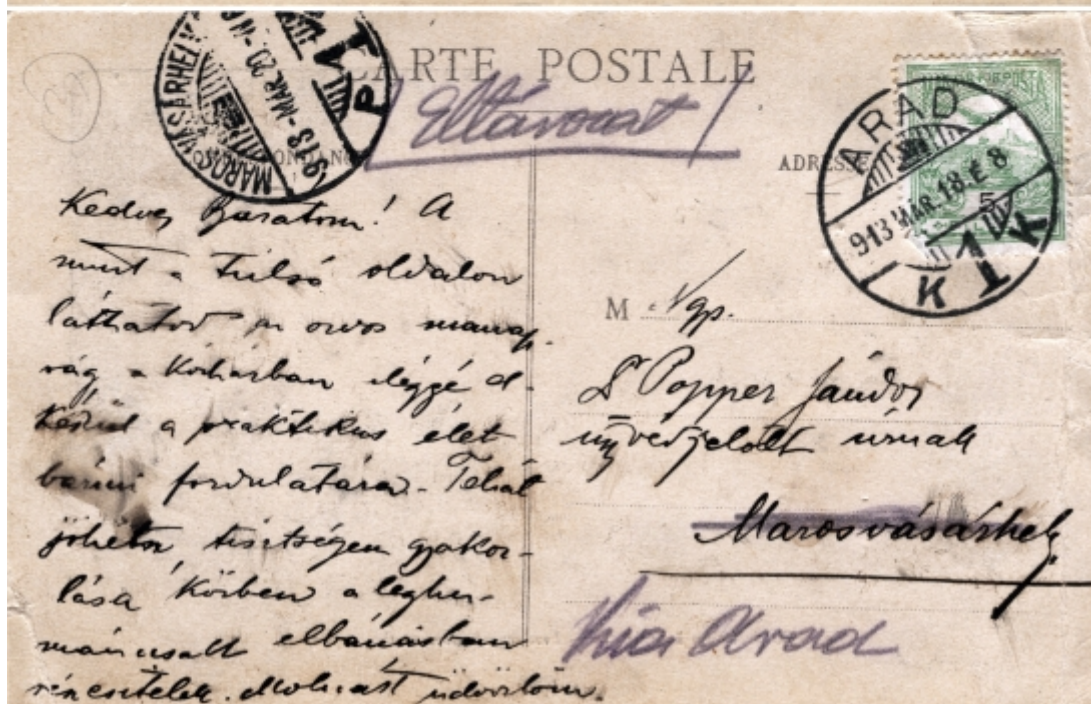 CARTE POSTALE
Eltávozott
MAROSVÁSÁRHELY
913 MAR. 20.
P
ADRESSE
ARAD
913 MAR. 18. É 8
1 K
K
5
Kedves Barátom! A
mint a túlsó oldalon
láthatod az orvos manap
ság a kórházban eléggé el-
készül a praktikus élet
bármi fordulatára. Tehát
tisztségem gyakor-
lása közben a leghu-
mánusabb elbánásban
részesítelek. üdvözlöm.
M Ngs.
Dr Popper Sándor
ügyvédjelölt úrnak
Marosvásárhely
Arad